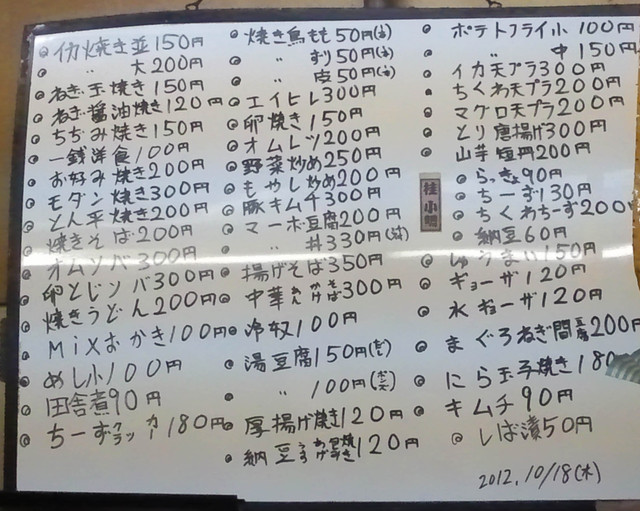 イカ焼き並150円
〃 大200円
ねぎ玉焼き150円
ねぎ醤油焼き120円
ちぢみ焼き150円
一銭洋食100円
お好み焼き200円
モダン焼き300円
とん平焼き200円
焼きそば200円
オムソバ300円
卵とじソバ300円
焼きうどん200円
Mixおかき100円
めし小100円
田舎煮90円
ちーずクラッカー180円
焼き鳥もも50円(1本)
〃 ずり50円(1本)
〃 皮50円(1本)
エイヒレ300円
卵焼き150円
オムレツ200円
野菜炒め250円
もやし炒め200円
豚キムチ300円
マーボ豆腐200円
〃 丼330円
揚げそば350円
中華あんかけそば300円
冷奴100円
湯豆腐150円
〃 100円
厚揚げ焼き120円
納豆うすあげ焼き120円
ポテトフライ小100円
〃 中150円
イカ天プラ300円
ちくわ天プラ200円
マグロ天プラ200円
とり唐揚げ300円
山芋短冊200円
らっきょ90円
ちーず130円
ちくわちーず200
納豆60円
しゅうまい150円
ギョーザ120円
水ギョーザ120円
まぐろねぎ間豆腐200円
にら玉子焼き180
キムチ90円
しば漬50円
桂小
2012.10/18(木)